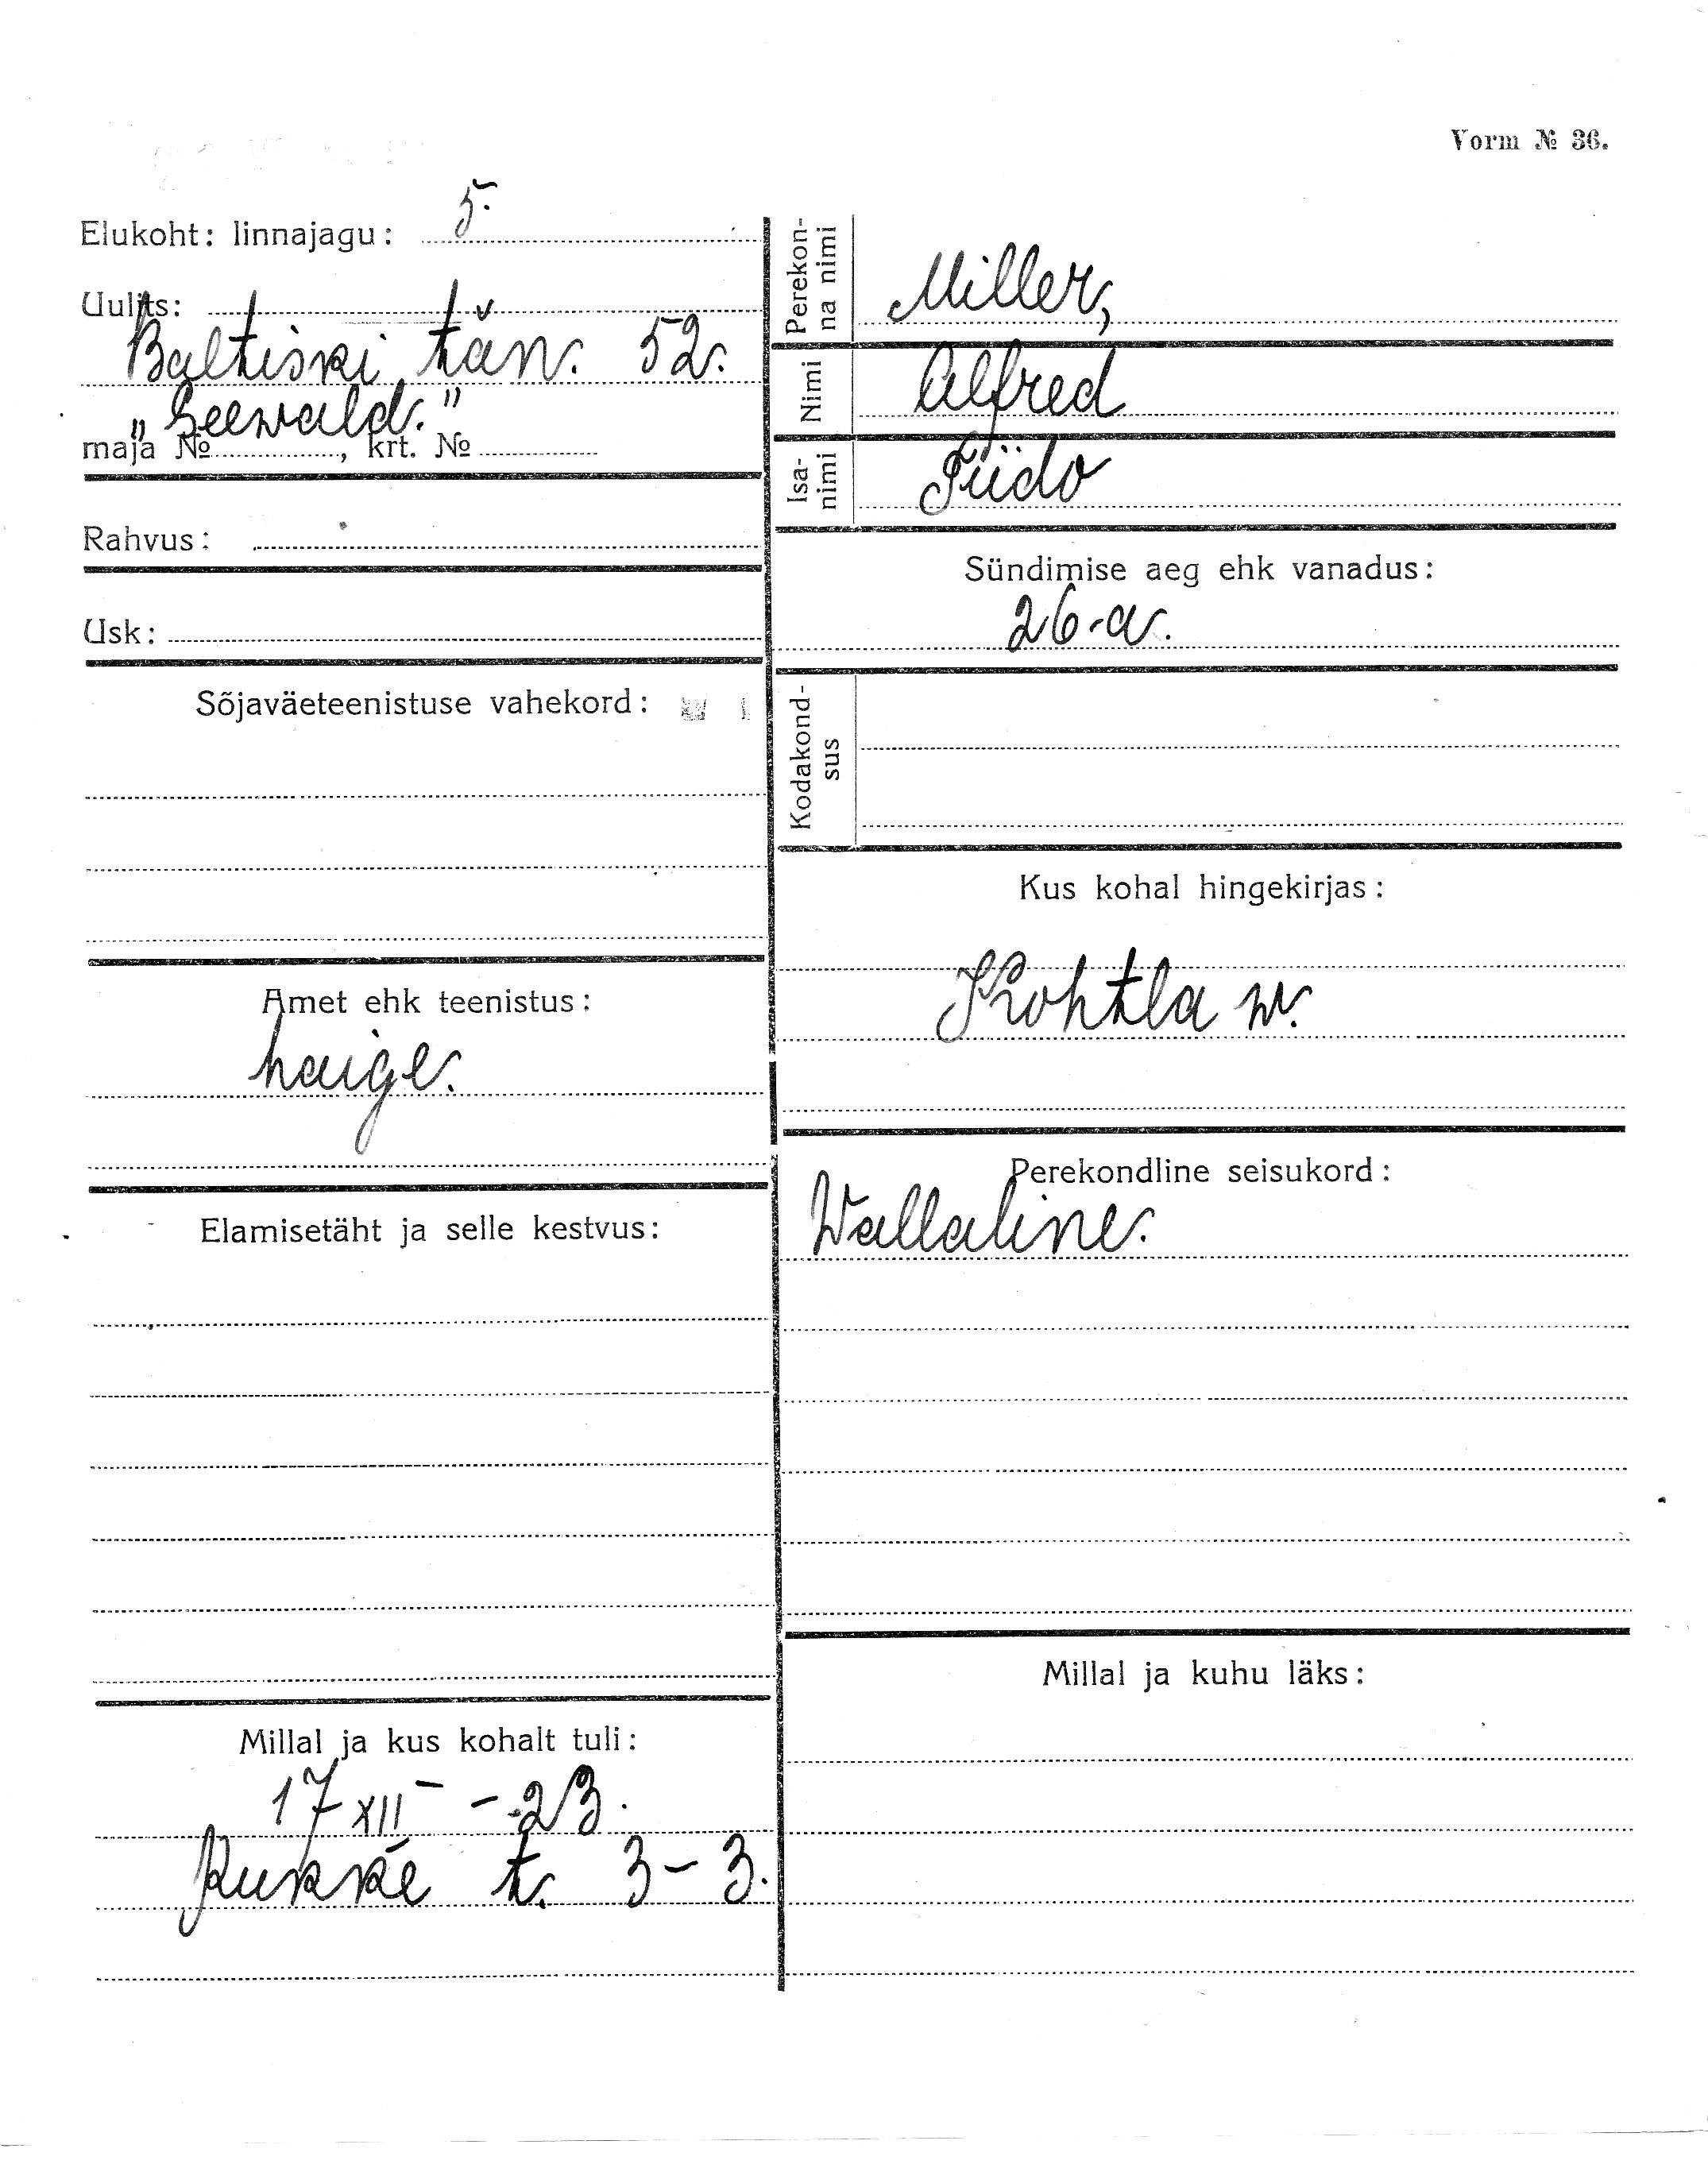 Vorm № 36.
Elukoht: linnajagu: 5.
Uulits:
Baltiski tän. 52.
„Seewald."
maja № , krt. №
Rahvus:
Usk:
Sõjaväeteenistuse vahekord:
Amet ehk teenistus:
haige.
Elamisetäht ja selle kestvus:
Millal ja kus kohalt tuli:
17 XII – 23.
t. 3 – 3.
Perekon-
na nimi
Miller,
Nimi
Alfred
Isa-
nimi
Tiido
Sündimise aeg ehk vanadus:
26-a.
Kodakond-
sus
Kus kohal hingekirjas:
Kohtla w.
Perekondline seisukord:
Wallaline.
Millal ja kuhu läks: